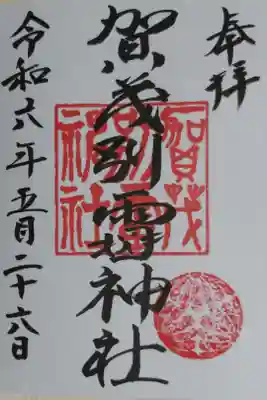 奉拝
賀茂別雷神社
賀茂
神社
令和六年五月二十六日